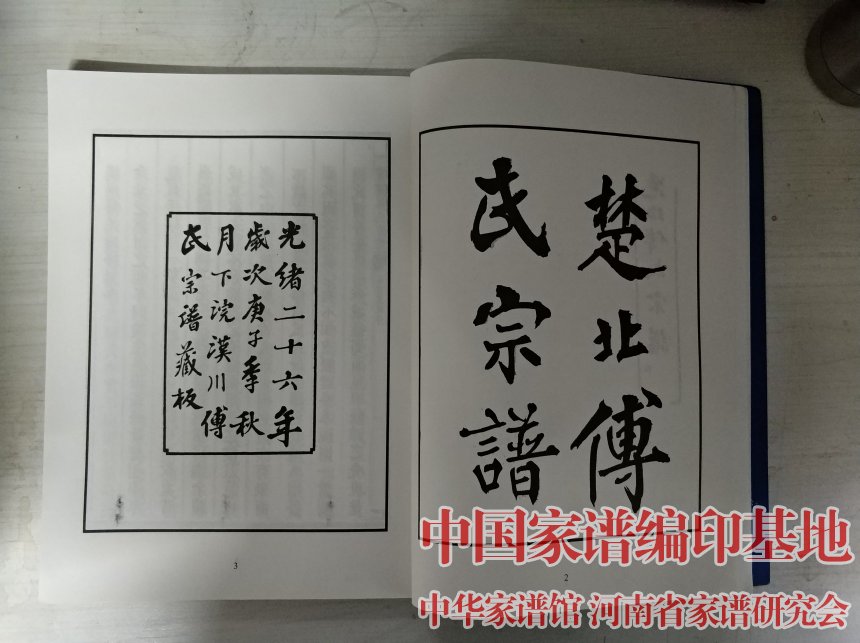 楚北傅
氏宗譜
2
光緒二十六年
歲次庚子季秋
月下浣漢川傅
氏宗譜藏板
3
中国家谱编印基地
中华家谱馆 河南省家谱研究会